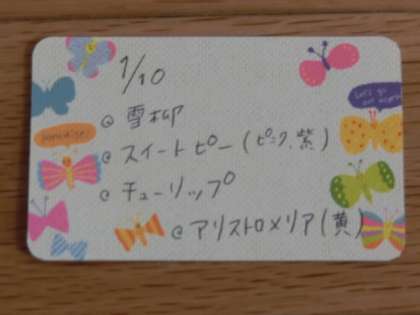 1/10
@ 雪柳
@ スイートピー(ピンク、紫)
@ チューリップ
@ アリストロメリア(黄)
Let's go